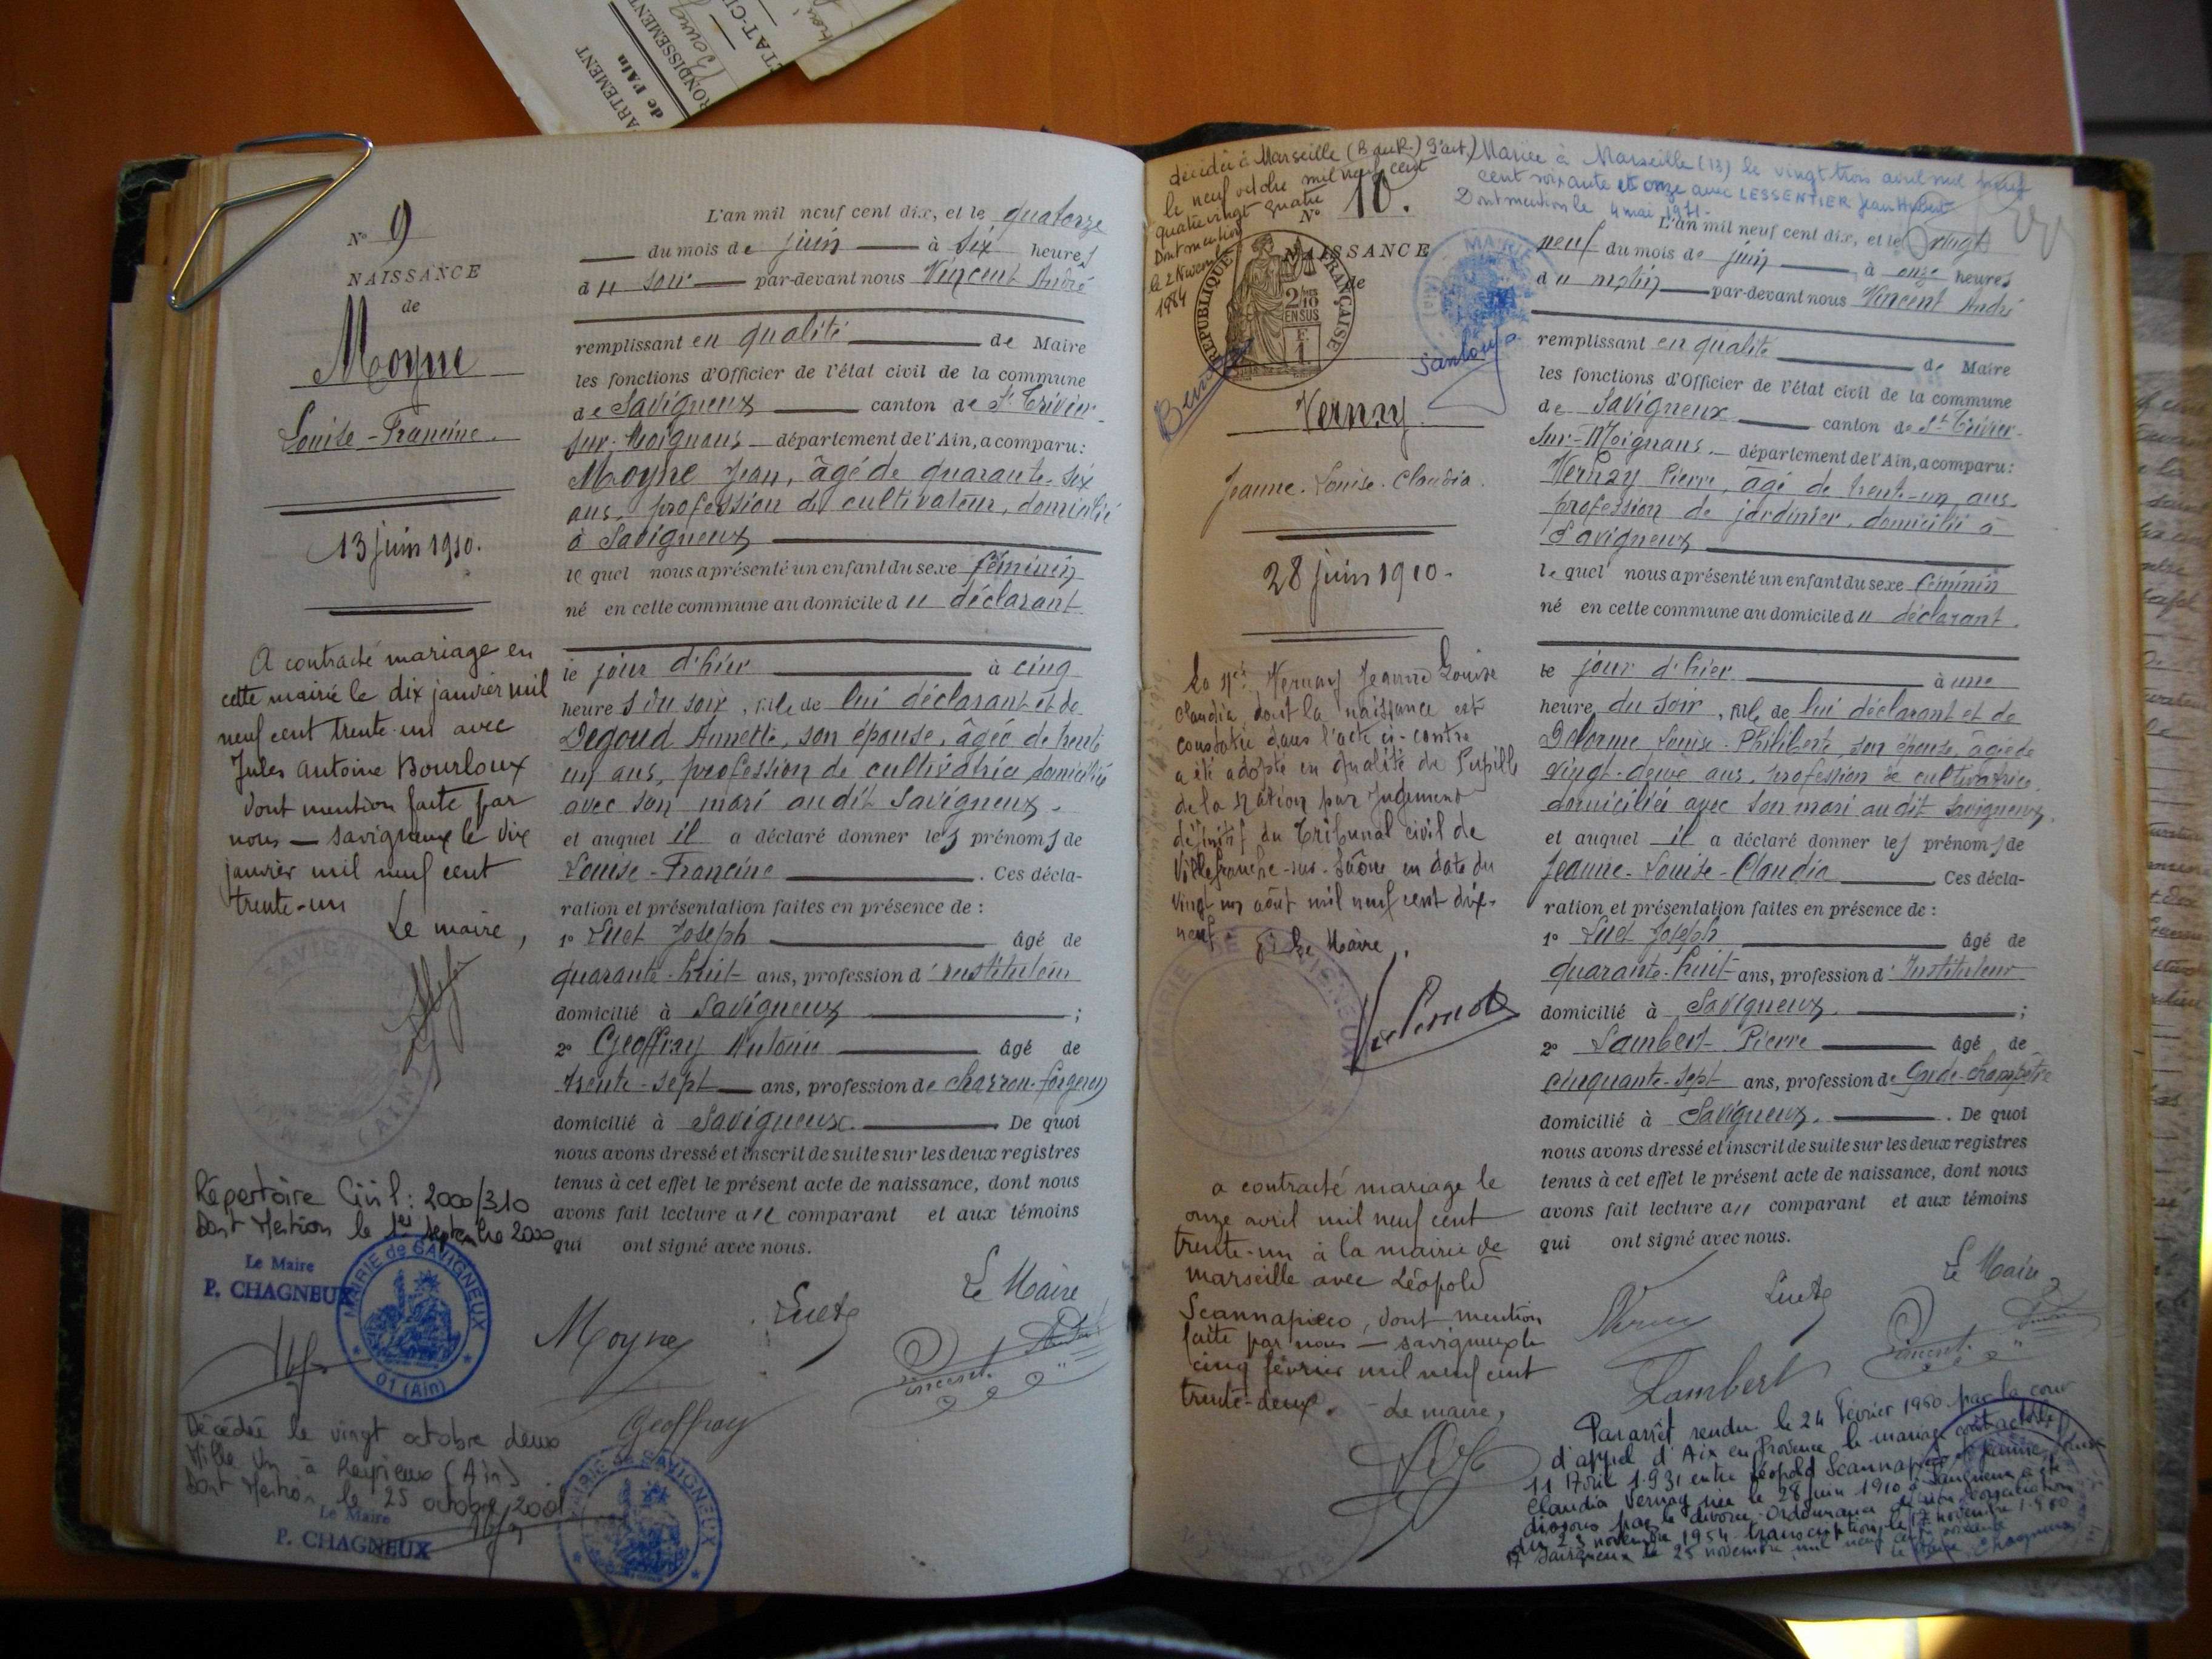 ARTEMENT
de l'Ain
RONDISSEMENT
TAT-CI
N° 9
NAISSANCE
de
Moyne
Louise-Francine.
13 juin 1910.
A contracté mariage en
cette mairie le dix janvier mil
neuf cent trente-un avec
Jules Antoine Bourloux
dont mention faite par
nous — Savigneux le dix
janvier mil neuf cent
trente-un
Le maire,
Répertoire Civil : 2000/310
Dont Mention le 1er septembre 2000
Le Maire
P. CHAGNEUX
MAIRIE de SAVIGNEUX
01 (Ain)
Décédée le vingt octobre deux
Mille Un à Reyrieux (Ain)
Dont Mention, le 25 octobre 2001
Le Maire
P. CHAGNEUX
MAIRIE de SAVIGNEUX
L'an mil neuf cent dix, et le quatorze
du mois de juin à six heures
du soir par-devant nous Vincent André
remplissant en qualité de Maire
les fonctions d'Officier de l'état civil de la commune
de Savigneux canton de St Trivier-
sur-Moignans département de l'Ain, a comparu :
Moyne Jean, âgé de quarante-six
ans, profession de cultivateur, domicilié
à Savigneux
le quel nous a présenté un enfant du sexe féminin
né en cette commune au domicile du déclarant
le jour d'hier à cinq
heures du soir, fille de lui déclarant et de
Degoud Annette, son épouse, âgée de trente
un ans, profession de cultivatrice domiciliée
avec son mari audit Savigneux.
et auquel il a déclaré donner les prénoms de
Louise-Francine . Ces décla-
ration et présentation faites en présence de :
1° Luet Joseph âgé de
quarante-huit ans, profession d'instituteur
domicilié à Savigneux ;
2° Geoffray Antoine âgé de
trente-sept ans, profession de charron-forgeron
domicilié à Savigneux. De quoi
nous avons dressé et inscrit de suite sur les deux registres
tenus à cet effet le présent acte de naissance, dont nous
avons fait lecture au comparant et aux témoins
qui ont signé avec nous.
Le Maire
Moyne Luet Vincent
Geoffray
décédée à Marseille (B du R.)
le neuf octobre mil neuf cent
quatre vingt quatre
Dont mention
1984
Mariée à Marseille (13) le vingt trois avril mil neuf
cent soixante et onze avec LESSENTIER Jean Hubert
Dont mention le 4 mai 1971.
N° 10.
NAISSANCE
de
REPUBLIQUE FRANÇAISE
2/10
EN SUS
MAIRIE
Vernay
Jeanne-Louise-Claudia.
28 juin 1910.
La née Vernay Jeanne Louise
Claudia dont la naissance est
constatée dans l'acte ci-contre
a été adoptée en qualité de Pupille
de la nation par jugement
définitif du Tribunal civil de
Villefranche-sur-Saône en date du
vingt un août mil neuf cent dix-
neuf.
Le Maire,
a contracté mariage le
onze avril mil neuf cent
trente-un à la mairie de
Marseille avec Léopold
Scannapieco, dont mention
faite par nous — Savigneux le
cinq février mil neuf cent
trente-deux.
Le maire,
L'an mil neuf cent dix, et le vingt
neuf du mois de juin à onze heures
du matin par-devant nous Vincent André
remplissant en qualité de Maire
les fonctions d'Officier de l'état civil de la commune
de Savigneux canton de St Trivier-
sur-Moignans département de l'Ain, a comparu :
Vernay Pierre, âgé de trente-un ans
profession de jardinier, domicilié à
Savigneux
le quel nous a présenté un enfant du sexe féminin
né en cette commune au domicile du déclarant.
le jour d'hier à une
heure du soir, fille de lui déclarant et de
Delorme Louise-Philiberte, son épouse, âgée de
vingt-deux ans, profession de cultivatrice
domiciliée avec son mari audit Savigneux,
et auquel il a déclaré donner les prénoms de
Jeanne-Louise-Claudia Ces décla-
ration et présentation faites en présence de :
1° Luet Joseph âgé de
quarante-huit ans, profession d'Instituteur
domicilié à Savigneux. ;
2° Lambert Pierre âgé de
cinquante-sept ans, profession de Garde-champêtre
domicilié à Savigneux. . De quoi
nous avons dressé et inscrit de suite sur les deux registres
tenus à cet effet le présent acte de naissance, dont nous
avons fait lecture au comparant et aux témoins
qui ont signé avec nous.
Le Maire
Vernay Luet Vincent
Lambert
Par arrêt rendu le 24 Février 1960 par la cour
d'appel d'Aix en Provence le mariage contracté le
11 Avril 1931 entre Léopold Scannapieco et Jeanne Louise
Claudia Vernay née le 28 juin 1910 à Savigneux a été
dissous par le divorce. Ordonnance de non conciliation
du 23 novembre 1954 transcription le 17 novembre 1960
Savigneux le 25 novembre mil neuf cent soixante
le Maire, Chagneux